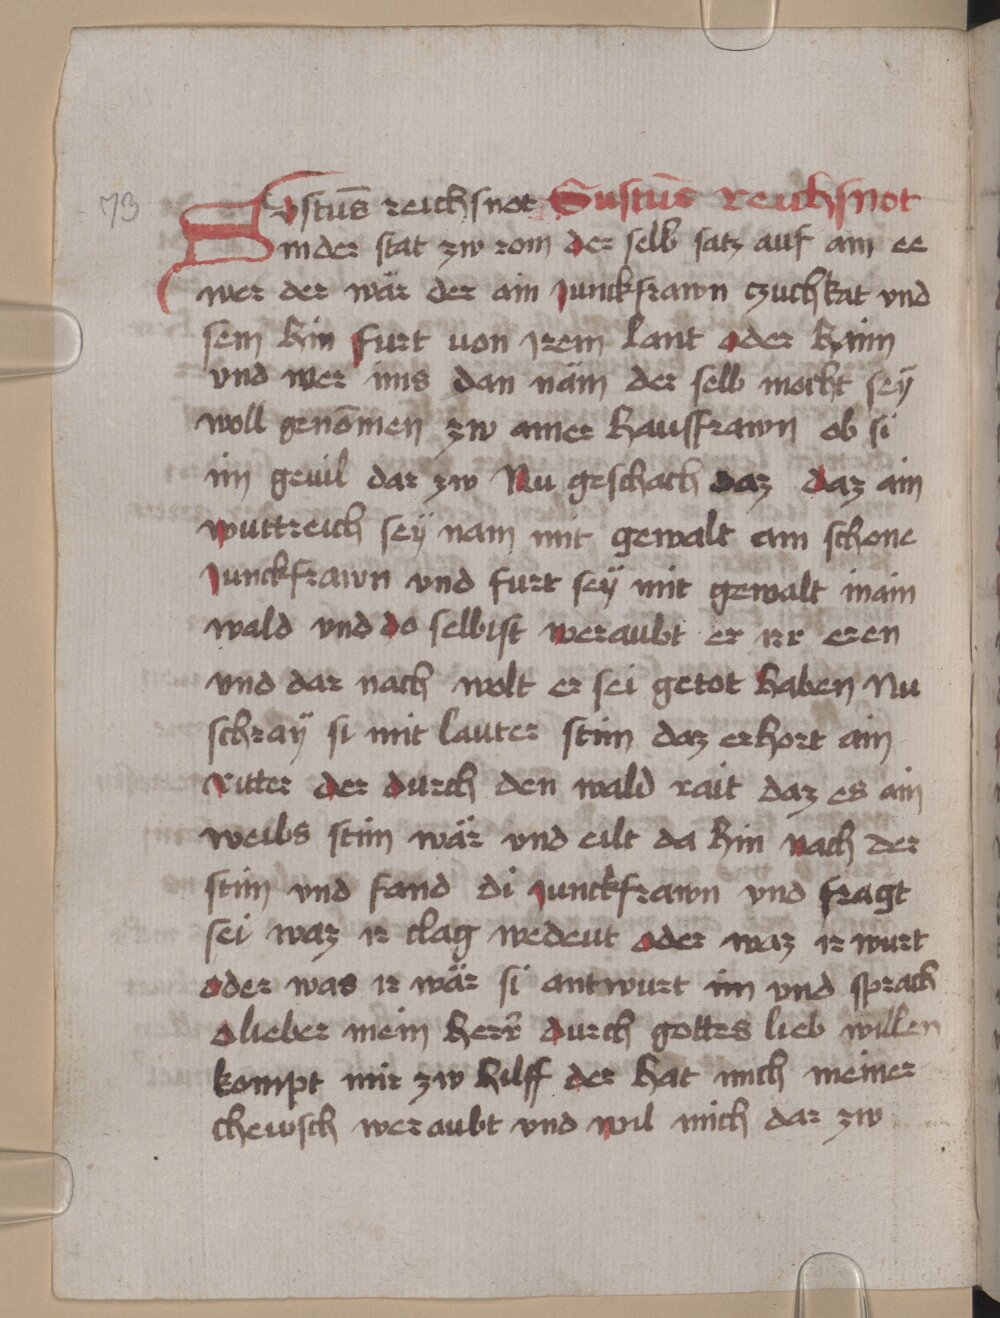 73
Sustus̄ reichsnot Sustus̄ reichsnot
in der stat zw rom der selb satz auf ain ee
wer der wär der ain junckfrawn czuchkat vnd
sem hin furt von jrem lant oder haim
vnd wer ims dan näm der selb mocht seÿ
woll genōmen zw ainer hausfrawn ob si
im geuil dar zw Nu geschach daz daz ain
wuttreich seÿ nam mit gewalt ain schone
junckfrawn vnd furt seÿ mit gewalt in ain
wald vnd do selbist weraubt er irr eren
vnd dar nach wolt er sei getot haben Nu
schraÿ si mit lauter stim daz erhort ain
ritter der durch den wald rait daz es ain
weibs stim wär vnd eilt da hin nach der
stim vnd fand di junckfrawn vnd fragt
sei waz ir clag wedeut oder waz ir wurt
oder was ir wär si antwurt im vnd sprach
o lieber mein herr̄ durch gottes lieb willen
kompt mir zw hilff der hat mich meiner
chewsch weraubt vnd wil mich dar zw